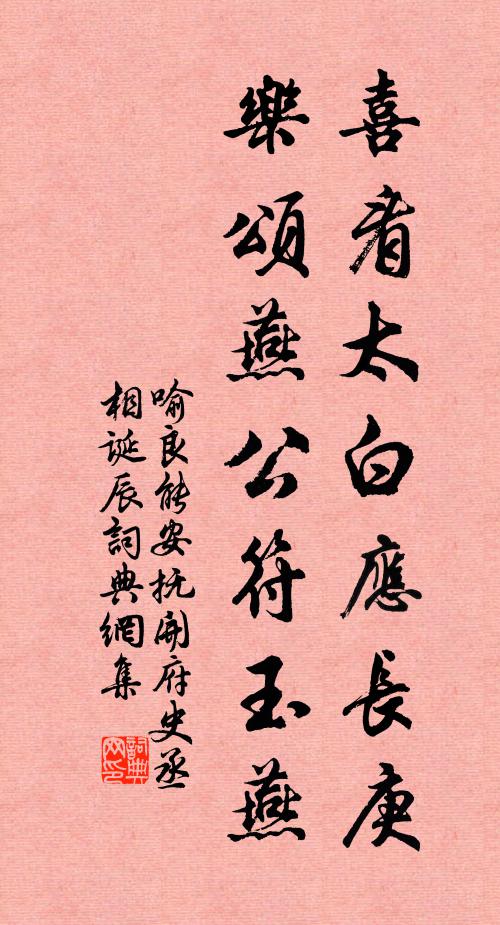 喜看太白應長庚
樂頌燕公符玉燕
喻良能安抚開府史丞
相誕辰詞典網集
詞典
网印